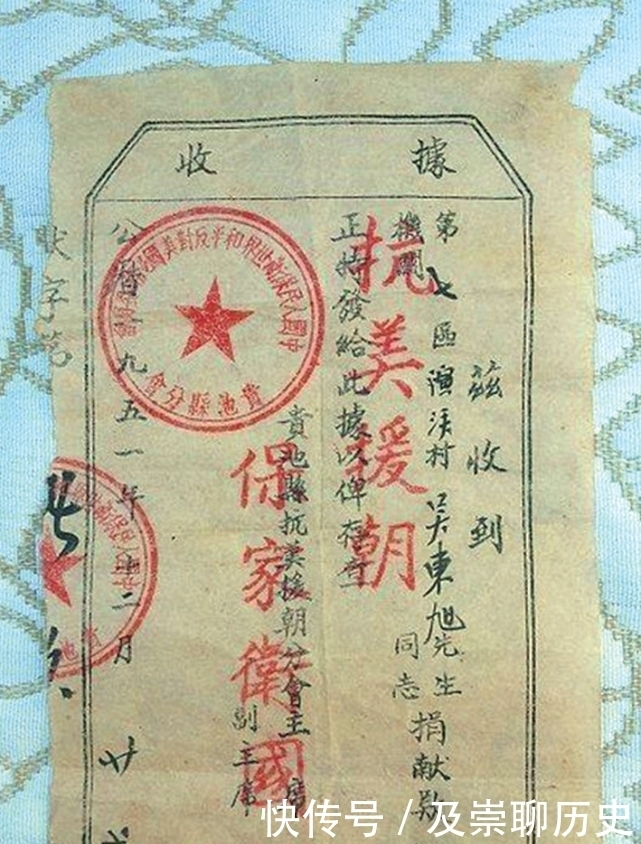 收據
茲收到
第七區
村吳東旭先生捐獻款
機關
同志
抗美援朝
正特發給此據以俾存查
貴池縣抗美援朝分會主席
副主席
保家衛國
中國人民保衛世界和平反對美國
貴池縣分會
公曆一九五一年十二月廿
字第
快传号 / 及崇聊历史